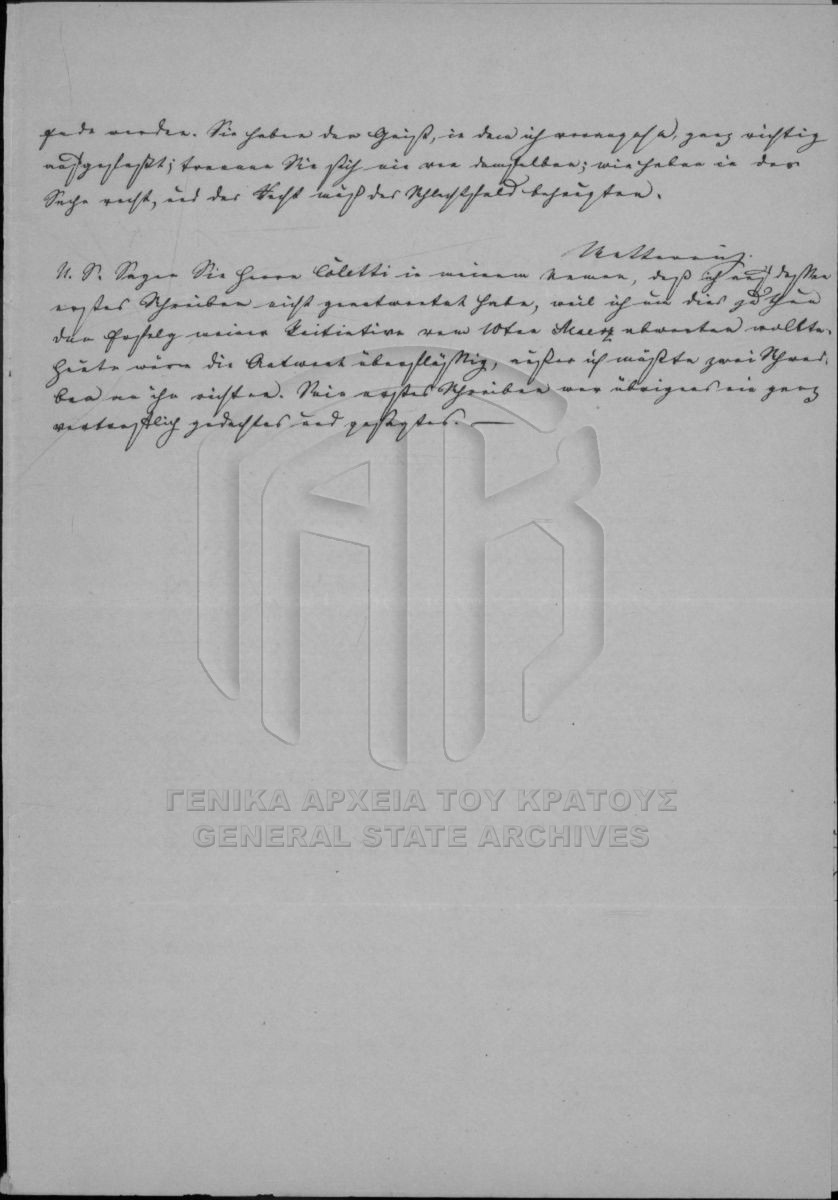 gende werden. Sie haben den Geist, in dem ich vorangehe, ganz richtig
aufgefaßt; trennen Sie sich nie von demselben; wir haben in der
Sache recht, und das Recht muß das Schlachtfeld behaupten.
Metternich.
N. S. Sagen Sie Herrn Coletti in meinem Namen, daß ich auf dessen
erstes Schreiben nicht geantwortet habe, weil ich um dies zu thun
den Erfolg meiner Initiative vom 10ten Maerz abwarten wollte.
Heute wäre die Antwort überflüssig, außer ich müßte zwei Schrei-
ben an ihn richten. Sein erstes Schreiben war übrigens ein ganz
vortrefflich gedachtes und gesagtes. —
ΓΕΝΙΚΑ ΑΡΧΕΙΑ ΤΟΥ ΚΡΑΤΟΥΣ
GENERAL STATE ARCHIVES